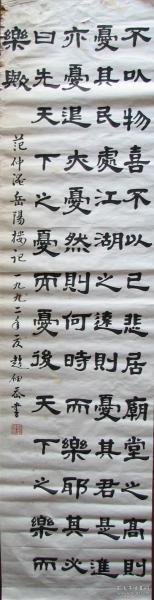 不以物喜不以己悲居廟堂之高則
憂其民處江湖之遠則憂其君是進
亦憂退亦憂然則何時而樂耶其必
曰先天下之憂而憂後天下之樂而
樂歟
范仲淹岳陽樓記一九九二年夏趙